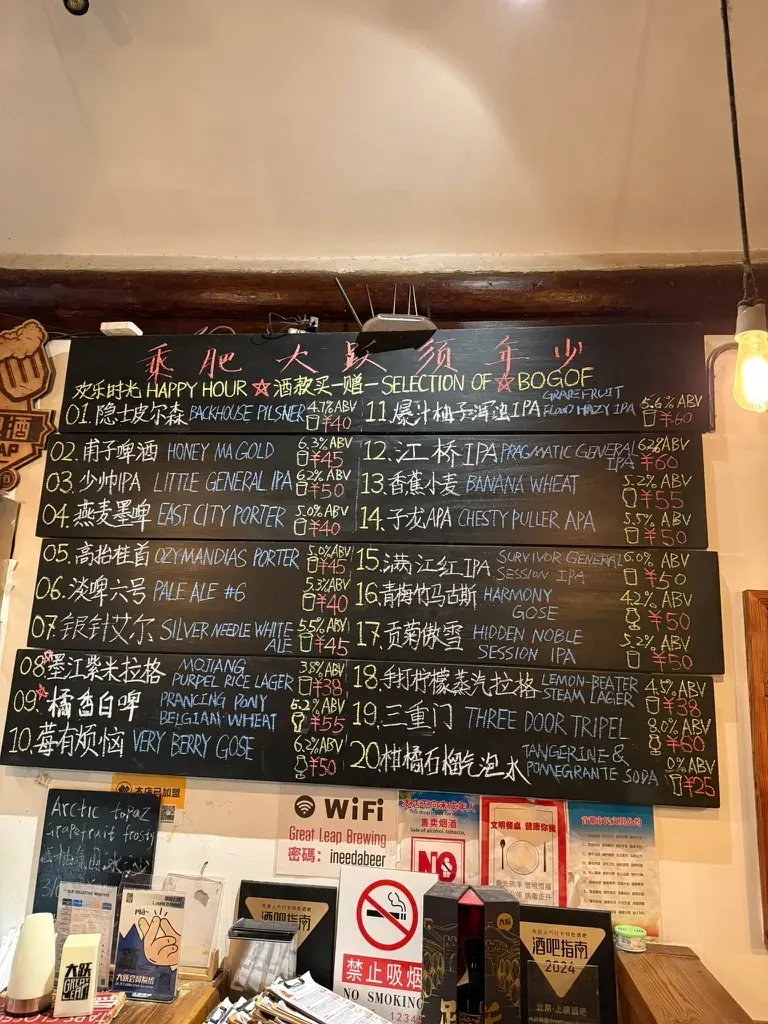 乘肥大跃须年少
欢乐时光 HAPPY HOUR ☆酒款买一赠一 SELECTION OF ☆ BOGOF
01. 隐士皮尔森 BACKHOUSE PILSNER 4.7% ABV ¥40
02. 甫子啤酒 HONEY MA GOLD 6.3% ABV ¥45
03. 少帅IPA LITTLE GENERAL IPA 6.2% ABV ¥50
04. 燕麦墨啤 EAST CITY PORTER 5.0% ABV ¥40
05. 高抬桂首 OZYMANDIAS PORTER 5.0% ABV ¥45
06. 淡啤六号 PALE ALE #6 5.3% ABV ¥40
07. 银针艾尔 SILVER NEEDLE WHITE ALE 5.5% ABV ¥45
08. 墨江紫米拉格 MOJIANG PURPEL RICE LAGER 3.8% ABV ¥38
09. 橘香白啤 PRANCING PONY BELGIAN WHEAT 5.2% ABV ¥55
10. 莓有烦恼 VERY BERRY GOSE 6.2% ABV ¥50
11. 爆汁柚子浑浊IPA GRAPEFRUIT FLOOD HAZY IPA 5.6% ABV ¥60
12. 江桥IPA PRAGMATIC GENERAL IPA 6.2% ABV ¥60
13. 香蕉小麦 BANANA WHEAT 5.2% ABV ¥55
14. 子龙APA CHESTY PULLER APA 5.5% ABV ¥50
15. 满江红IPA SURVIVOR GENERAL SESSION IPA 6.0% ABV ¥50
16. 青梅竹马古斯 HARMONY GOSE 4.2% ABV ¥50
17. 贡菊傲雪 HIDDEN NOBLE SESSION IPA 5.2% ABV ¥50
18. 手打柠檬蒸汽拉格 LEMON-BEATER STEAM LAGER 4.5% ABV ¥38
19. 三重门 THREE DOOR TRIPEL 8.0% ABV ¥60
20. 柑橘石榴气泡水 TANGERINE & POMEGRANTE SODA 0% ABV ¥25
本店已加盟
Arctic topaz
Grapefruit frosty
WiFi
Great Leap Brewing
密碼：ineedabeer
售卖烟酒
Sale of alcohol, tobacco,
NO
文明餐桌 健康你我
首都市民文明公约
酒吧指南
禁止吸烟
NO SMOKING
大跃
GREAT LEAP
大跃
酒吧指南
2024
北京·上榜酒吧